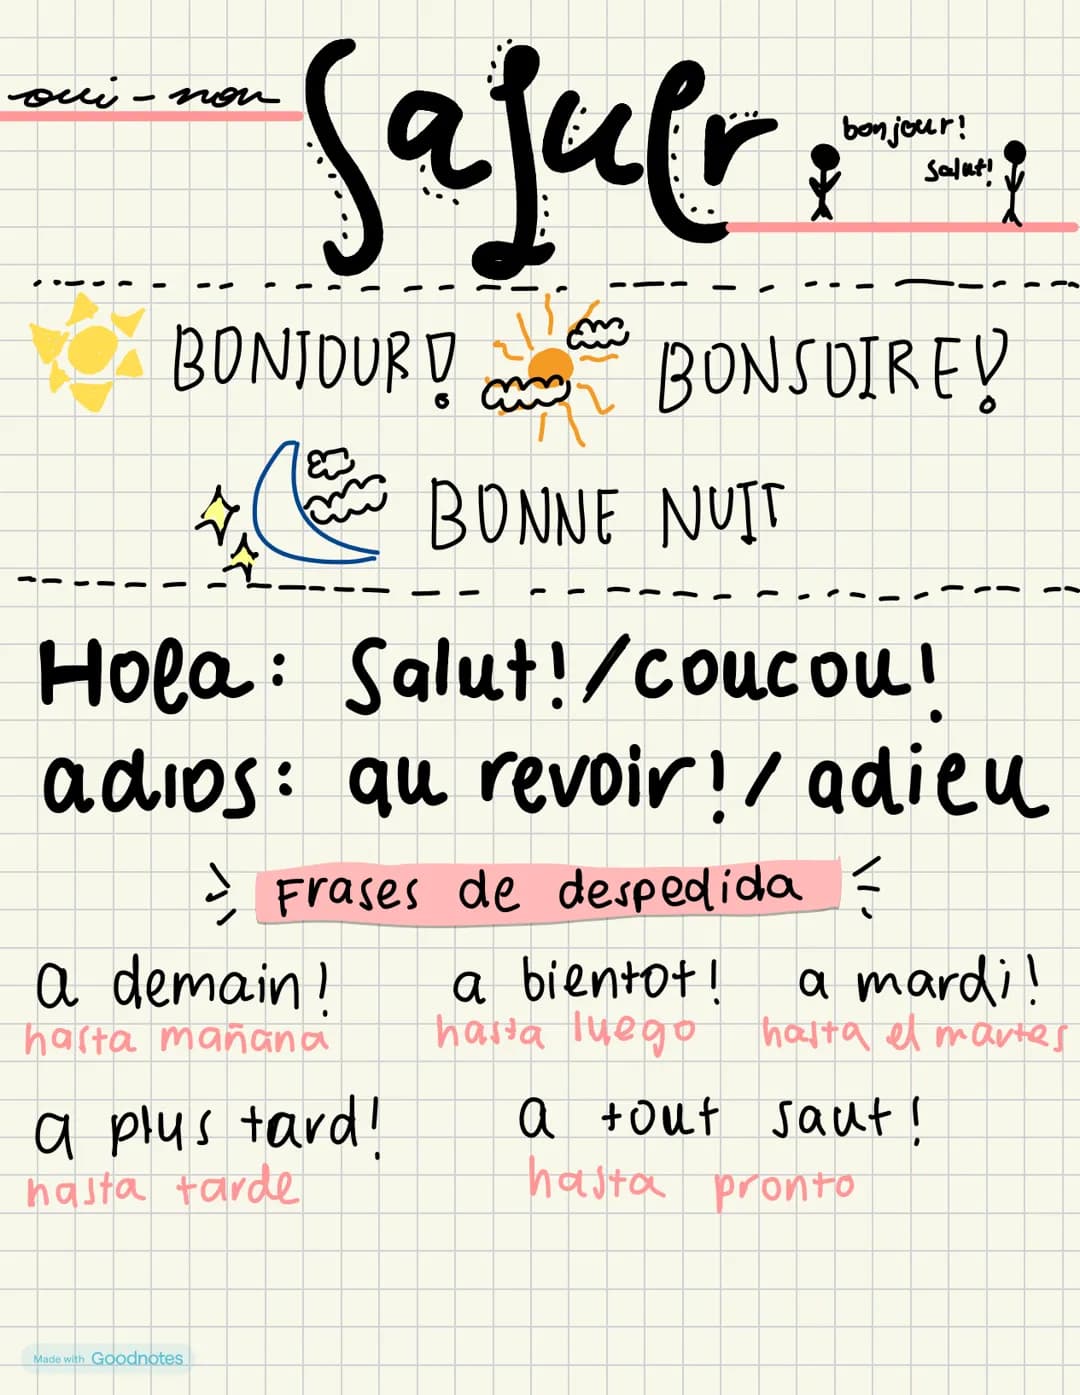 oui - non
Saluer
bonjour!
salut!
BONJOUR!
BONSOIRE!
BONNE NUIT
Hola: Salut!/coucou!
adios: au revoir!/adieu
Frases de despedida
a demain! a bientot! a mardi!
hasta mañana hasta luego hasta el martes
a plus tard! a tout saut!
hasta tarde hasta pronto
Made with Goodnotes